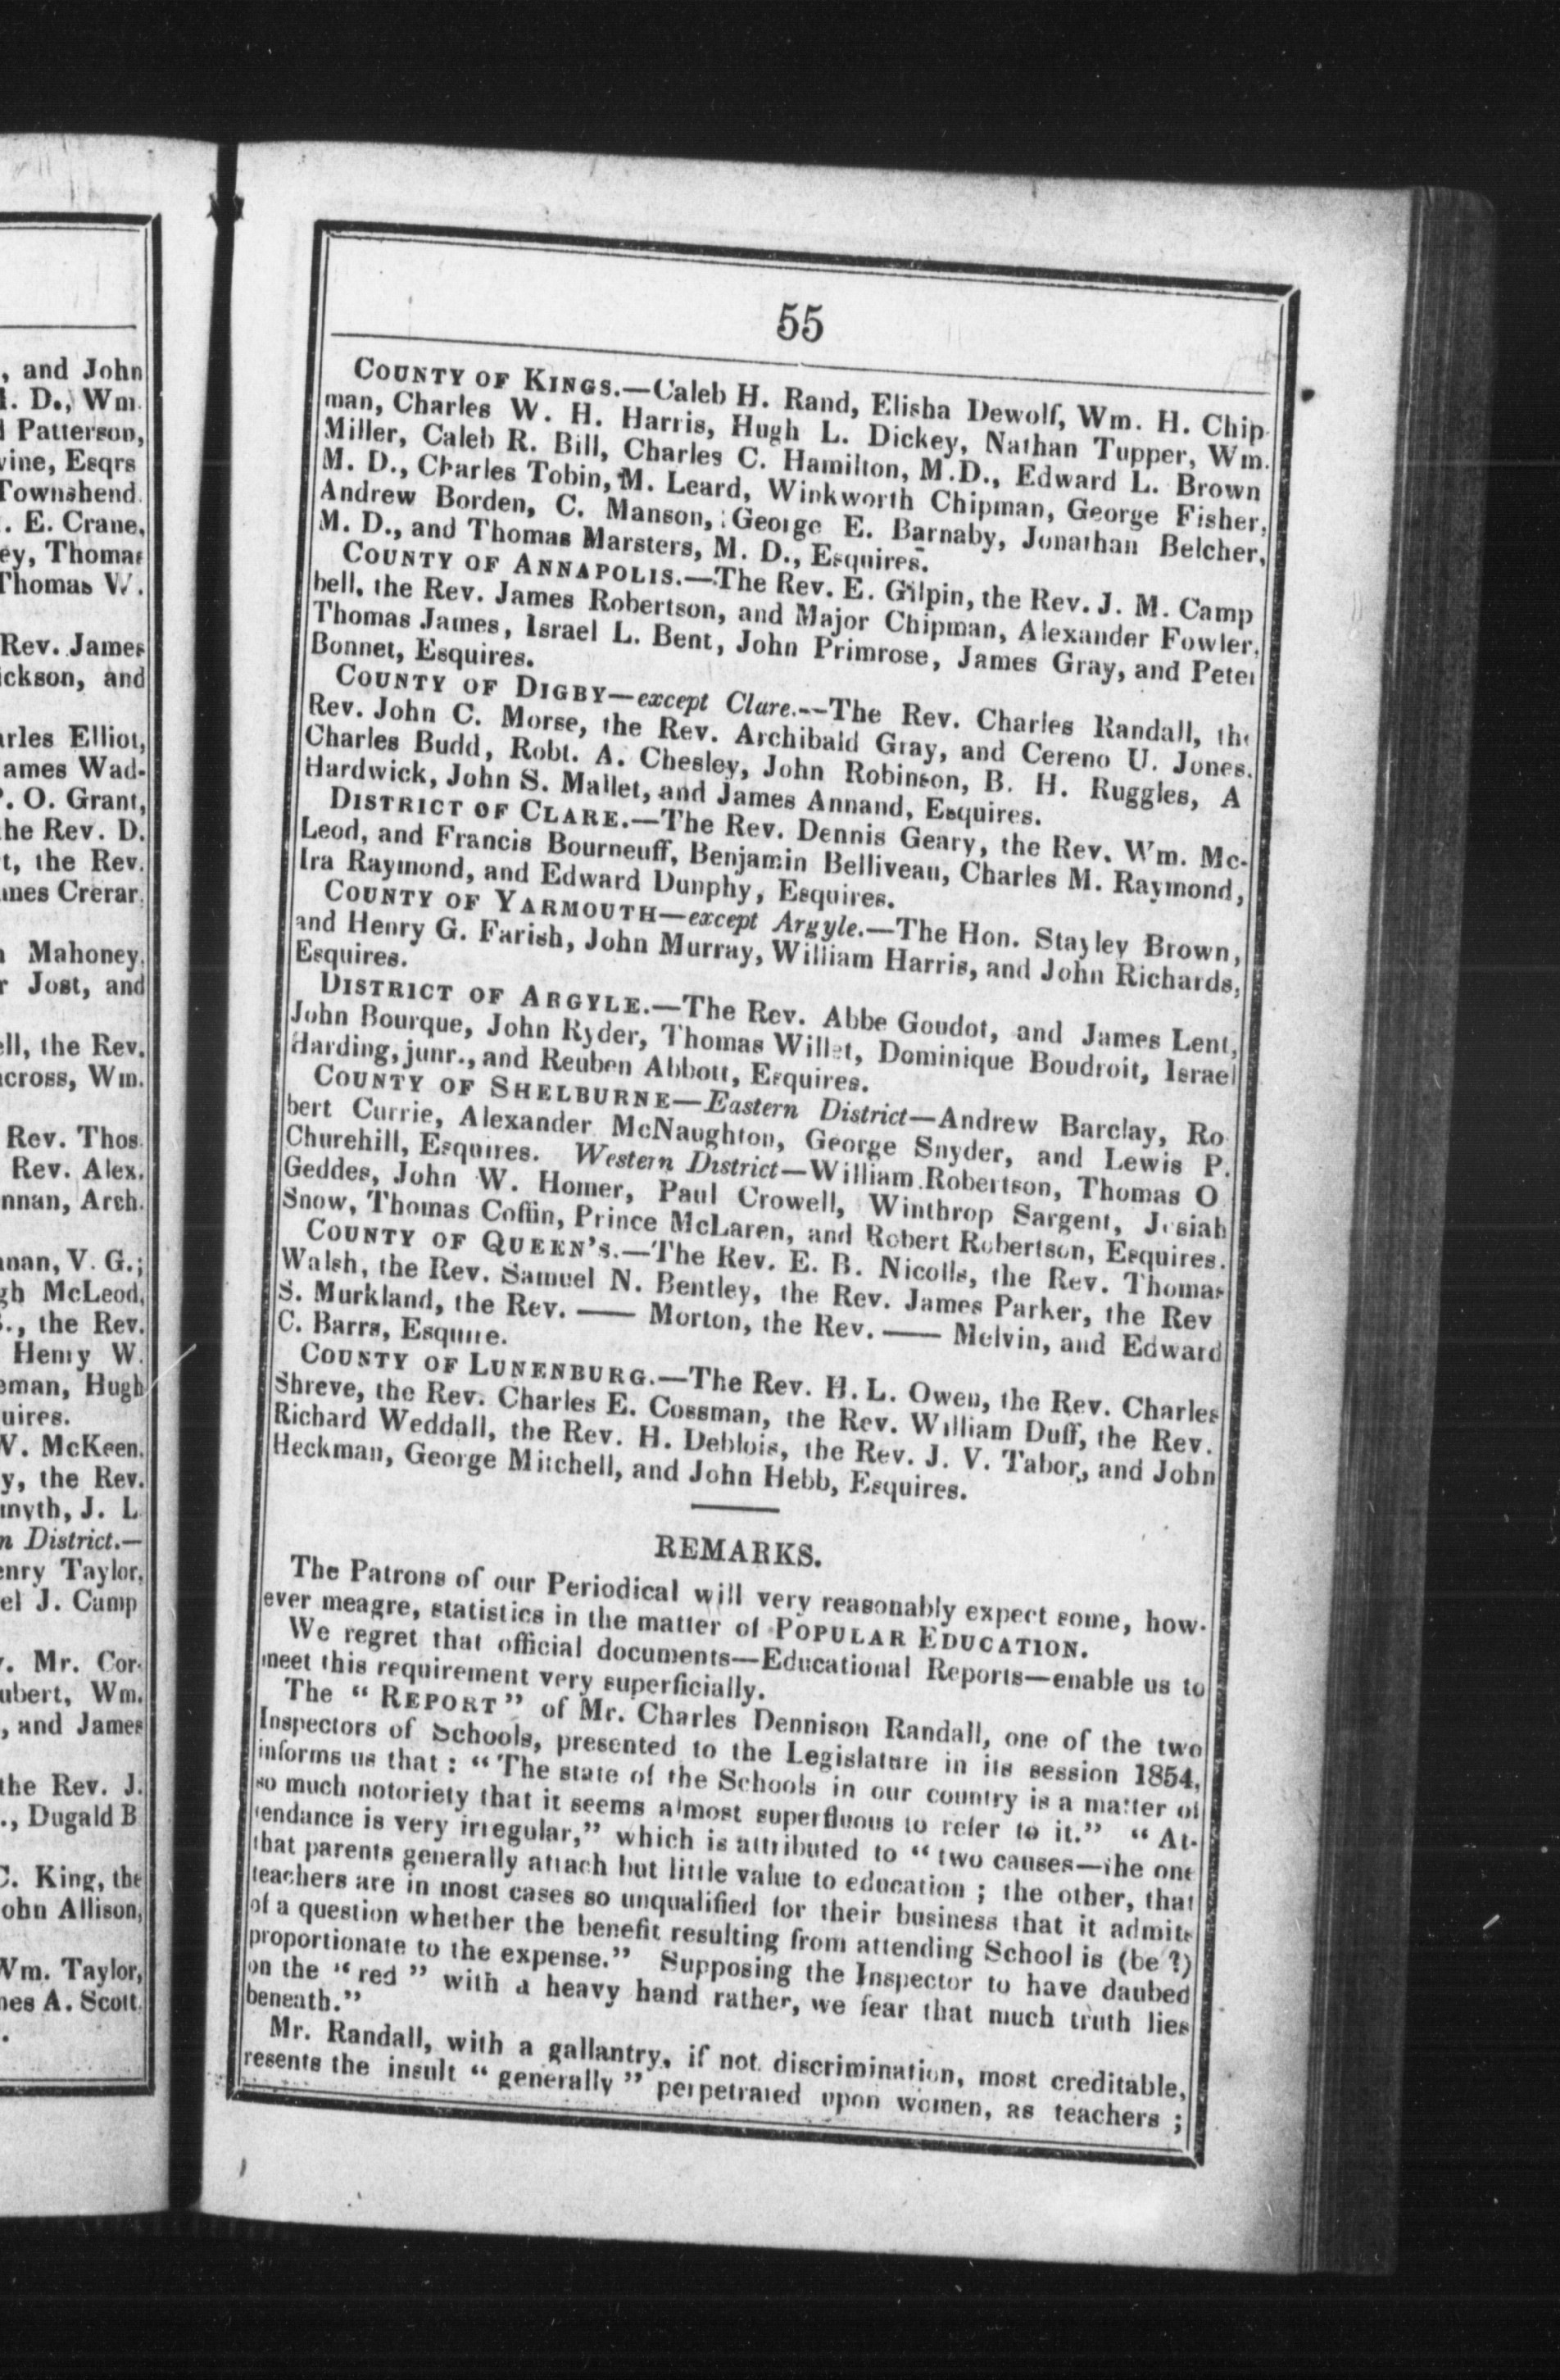 , and John
I. D., Wm.
d Patterson,
vine, Esqrs
Townshend.
. E. Crane,
ey, Thomas
Thomas W.
Rev. James
ickson, and
arles Elliot,
ames Wad-
P. O. Grant,
he Rev. D.
t, the Rev.
ames Crerar.
Mahoney.
r Jost, and
ell, the Rev.
cross, Wm.
Rev. Thos.
Rev. Alex.
nnan, Arch.
nan, V. G.;
gh McLeod,
., the Rev.
Henry W.
eman, Hugh
uires.
W. McKeen.
y, the Rev.
myth, J. L
n District.—
enry Taylor,
el J. Camp
. Mr. Cor-
ubert, Wm.
, and James
the Rev. J.
., Dugald B
C. King, the
ohn Allison,
Wm. Taylor,
nes A. Scott.
55
COUNTY OF KINGS.—Caleb H. Rand, Elisha Dewolf, Wm. H. Chip-
man, Charles W. H. Harris, Hugh L. Dickey, Nathan Tupper, Wm.
Miller, Caleb R. Bill, Charles C. Hamilton, M.D., Edward L. Brown
M. D., Charles Tobin, M. Leard, Winkworth Chipman, George Fisher,
Andrew Borden, C. Manson, George E. Barnaby, Jonathan Belcher,
M. D., and Thomas Marsters, M. D., Esquires.
COUNTY OF ANNAPOLIS.—The Rev. E. Gilpin, the Rev. J. M. Camp
bell, the Rev. James Robertson, and Major Chipman, Alexander Fowler,
Thomas James, Israel L. Bent, John Primrose, James Gray, and Peter
Bonnet, Esquires.
COUNTY OF DIGBY—except Clare.--The Rev. Charles Randall, the
Rev. John C. Morse, the Rev. Archibald Gray, and Cereno U. Jones.
Charles Budd, Robt. A. Chesley, John Robinson, B. H. Ruggles, A
Hardwick, John S. Mallet, and James Annand, Esquires.
DISTRICT OF CLARE.—The Rev. Dennis Geary, the Rev. Wm. Mc-
Leod, and Francis Bourneuff, Benjamin Belliveau, Charles M. Raymond,
Ira Raymond, and Edward Dunphy, Esquires.
COUNTY OF YARMOUTH—except Argyle.—The Hon. Stayley Brown,
and Henry G. Farish, John Murray, William Harris, and John Richards,
Esquires.
DISTRICT OF ARGYLE.—The Rev. Abbe Goudot, and James Lent,
John Bourque, John Ryder, Thomas Willet, Dominique Boudroit, Israel
Harding, junr., and Reuben Abbott, Esquires.
COUNTY OF SHELBURNE—Eastern District—Andrew Barclay, Ro
bert Currie, Alexander McNaughton, George Snyder, and Lewis P.
Churehill, Esquires. Western District—William Robertson, Thomas O
Geddes, John W. Homer, Paul Crowell, Winthrop Sargent, Josiah
Snow, Thomas Coffin, Prince McLaren, and Robert Robertson, Esquires.
COUNTY OF QUEEN'S.—The Rev. E. B. Nicolls, the Rev. Thomas
Walsh, the Rev. Samuel N. Bentley, the Rev. James Parker, the Rev
S. Murkland, the Rev. —— Morton, the Rev. —— Melvin, and Edward
C. Barrs, Esquire.
COUNTY OF LUNENBURG.—The Rev. H. L. Owen, the Rev. Charles
Shreve, the Rev. Charles E. Cossman, the Rev. William Duff, the Rev.
Richard Weddall, the Rev. H. Deblois, the Rev. J. V. Tabor, and John
Heckman, George Mitchell, and John Hebb, Esquires.
REMARKS.
The Patrons of our Periodical will very reasonably expect some, how-
ever meagre, statistics in the matter of POPULAR EDUCATION.
We regret that official documents—Educational Reports—enable us to
meet this requirement very superficially.
The "REPORT" of Mr. Charles Dennison Randall, one of the two
Inspectors of Schools, presented to the Legislature in its session 1854,
informs us that: "The state of the Schools in our country is a matter of
so much notoriety that it seems almost superfluous to refer to it." "At-
tendance is very irregular," which is attributed to "two causes—the one
that parents generally attach but little value to education; the other, that
teachers are in most cases so unqualified for their business that it admits
of a question whether the benefit resulting from attending School is (be?)
proportionate to the expense." Supposing the Inspector to have daubed
on the "red" with a heavy hand rather, we fear that much truth lies
beneath."
Mr. Randall, with a gallantry, if not discrimination, most creditable,
resents the insult "generally" perpetrated upon women, as teachers;